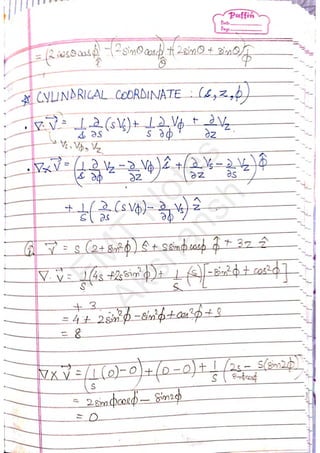 Puffin
Date
Page
= (2cosθcosϕ) - (2sinθcosϕ) + (2sinθ + sinθ/ϕ
θ
☆ CYLINDRICAL COORDINATE : (s, z, ϕ)
• ∇.V⃗ = 1/s ∂/∂s (sVs) + 1/s ∂/∂ϕ Vϕ + ∂/∂z Vz
↳ Vs, Vϕ, Vz
• ∇×V⃗ = (1/s ∂/∂ϕ Vz - ∂/∂z Vϕ) ẑ + (∂/∂z Vs - ∂/∂s Vz) ϕ̂
+ 1/s (∂/∂s (sVϕ) - ∂/∂ϕ Vs) ẑ
Q. V⃗ = s(2+sin²ϕ) ŝ + s sinϕ cosϕ ϕ̂ + 3z ẑ
∇.V⃗ = 1/s (4s + 2s sin²ϕ) + 1/s (s) [-sin²ϕ + cos²ϕ]
+ 3
= 4 + 2sin²ϕ - sin²ϕ + cos²ϕ + 3
= 8
∇×V⃗ = (1/s (0) - 0) + (0-0) + 1/s (2s - s(sin2ϕ)
sinϕcosϕ
= 2sinϕcosϕ - sin2ϕ
= 0